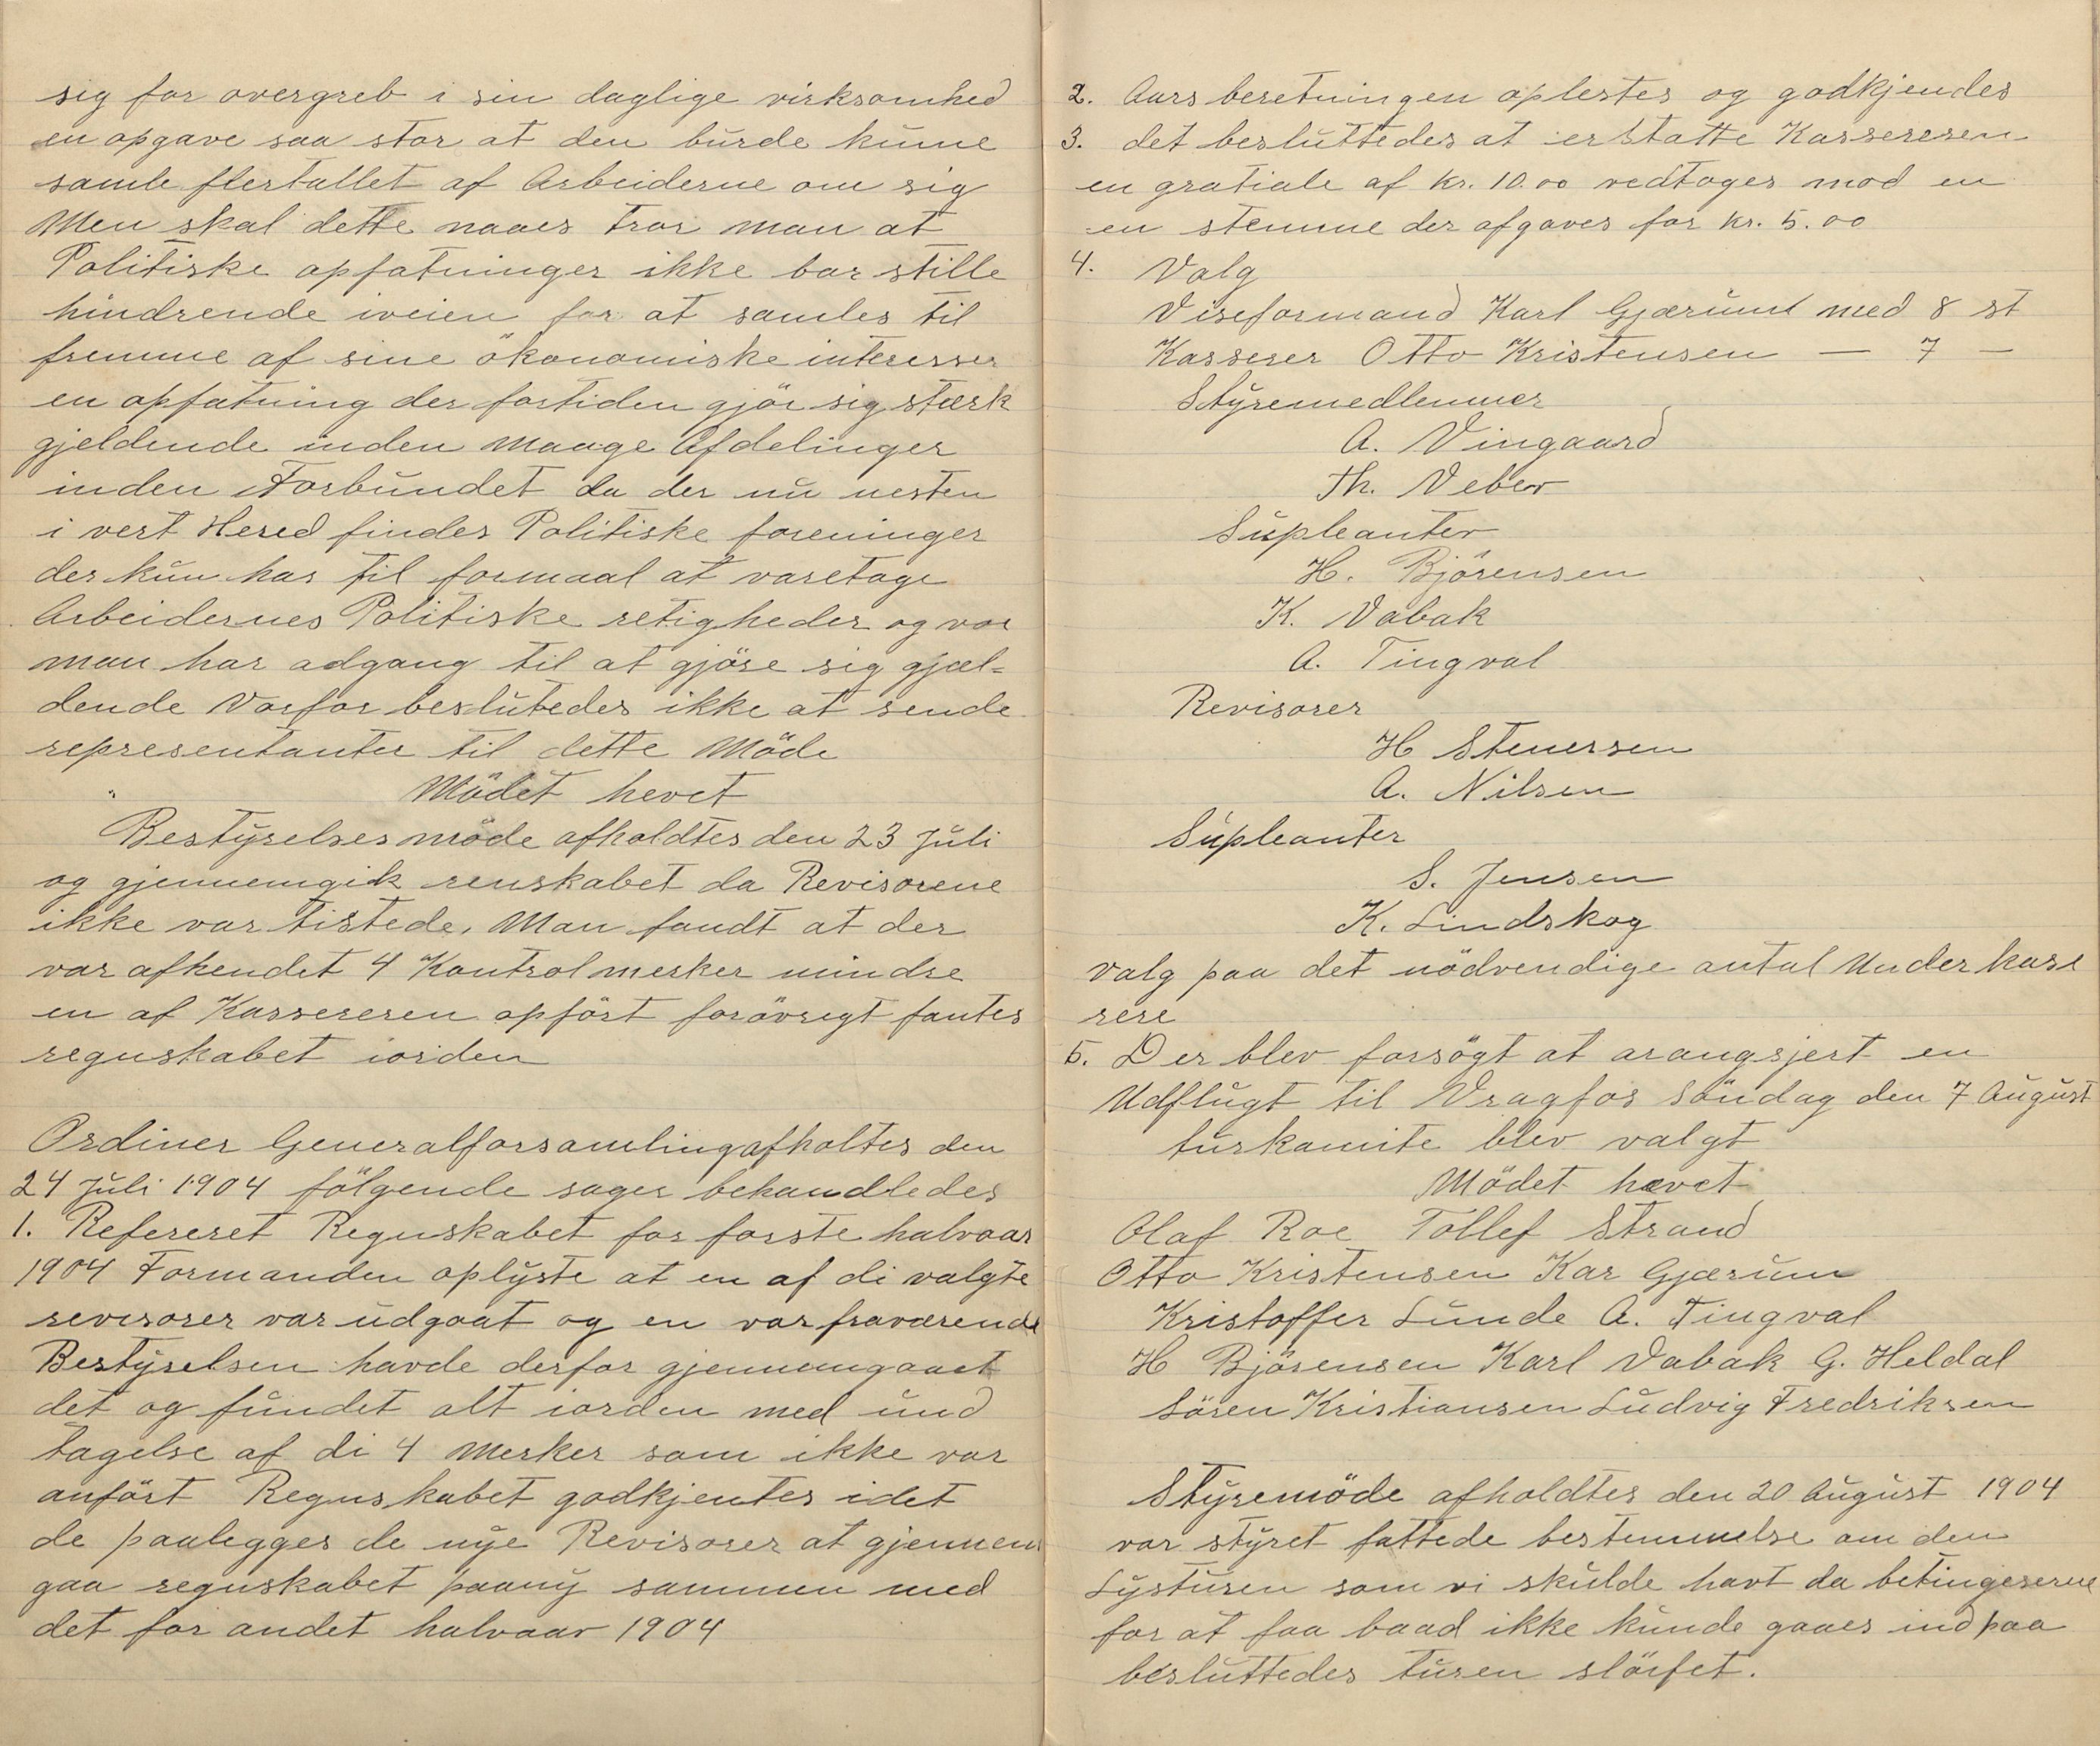 sig for overgreb i sin daglige virksomhed
en opgave saa stor at den burde kunne
samle flertallet af Arbeiderne om sig
Men skal dette naaes tror man at
Politiske opfatninger ikke bør stille
hindrende iveien for at samles til
fremme af sine ökonomiske interesser
en opfatning der fortiden gjör sig stærk
gjeldende inden Mange Afdelinger
inden Forbundet da der nu nesten
i vert Hered findes Politiske foreninger
der kun har til formaal at varetage
Arbeidernes Politiske retigheder og vor
man har adgang til at gjöre sig gjæl-
dende Vorfor beslutedes ikke at sende
representanter til dette Möde
Mödet hevet
Bestyrelsesmöde afholdtes den 23 Juli
og gjennemgik renskabet da Revisorene
ikke var tistede. Man fandt at der
var afkendet 4 Kontrolmerker mindre
en af Kassereren opfört forövregt fantes
regnskabet iorden
Ordiner Generalforsamling afholtes den
24 Juli 1904 fölgende sager behandledes
1. Refereret Regnskabet for forste halvaar
1904 Formanden oplyste at en af di valgte
revisorer var udgaat og en var fraværende
Bestyrelsen havde derfor gjennemgaaet
det og fundet alt iorden med und
tagelse af di 4 Merker som ikke var
anfört Regnskabet godkjentes idet
de paalegges de nye Revisorer at gjennem
gaa regnskabet paany sammen med
det for andet halvaar 1904
2. Aarsberetningen oplestes og godkjendes
3. det besluttedes at erstatte Kassereren
en gratiale af Kr. 10.00 vedtoges mod en
en stemme der afgaves for Kr. 5.00
4. Valg
Viseformand Karl Gjærum med 8 st
Kasserer Otto Kristensen — 7 —
Styremedlemmer
A. Vingaard
Th. Veber
Supleanter
H. Björensen
K. Vabak
A. Tingval
Revisorer
H Stenersen
A. Nilsen
Supleanter
S. Jensen
K. Lindskog
Valg paa det nödvendige antal Underkass
rere
5. Der blev forsögt at arangsjert en
Udflugt til Vragfos Söndag den 7 August
turkomite blev valgt
Mödet hævet
Olaf Roe Tollef Strand
Otto Kristensen Kar Gjærum
Kristoffer Lunde A. Tingval
H Björensen Karl Vabak G. Heldal
Sören Kristiansen Ludvig Fredriksen
Styremöde afholdtes den 20 August 1904
vor styret fattede bestemmelse om den
Lysturen som vi skulde havt da betingererne
for at faa baad ikke kunde gaaes ind paa
besluttedes turen slöifet.